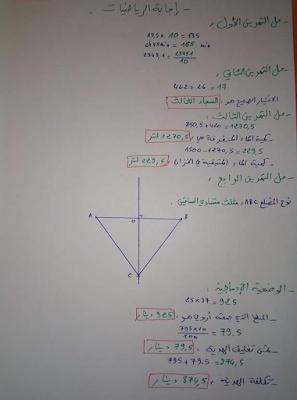 - إجابة الرياضيات -
- حل التمرين الأول:
13,5 × 10 = 135
2345,1 = 23451/10
- حل التمرين الثاني:
442 : 26 = 17
الاختيار الصحيح هو: السعاء الثالث
- حل التمرين الثالث:
850,5 + 420 = 1270,5
كمية الماء هي: 1270,5 لتر
1500 - 1270,5 = 229,5
كمية الماء المتبقية في الخزان: 229,5 لتر
- حل التمرين الرابع:
نوع المثلث ABC: مثلث متساوي الساقين.
A
B
C
- الوضعية الإدماجية:
25 × 37 = 925
المبلغ الذي هو: 925 دينار
795×10/100 = 79,5
ثمن تغليف الهدية: 79,5 دينار
795 + 79,5 = 874,5
تكلفة الهدية: 874,5 دينار